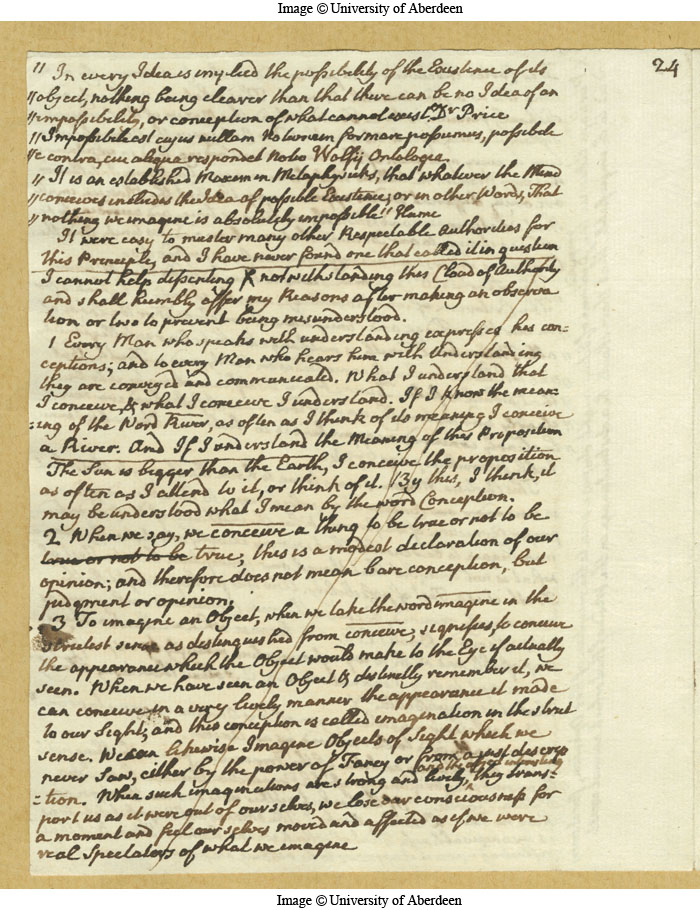 Image © University of Aberdeen
24
" In every Idea is implied the possibility of the Existence of its
" object, nothing being clearer than that there can be no Idea of an
" impossibility, or conception of what cannot exist. Dr Price
" Impossibile est cujus nullam notionem formare possumus, possibile
" e contra, cui aliqua respondet notio Wolfij Ontologia.
" It is an established Maxim in Metaphysicks, that whatever the Mind
" conceives includes the Idea of possible Existence; or in other Words, That
" nothing we imagine is absolutely impossible" Hume
It were easy to muster many other Respectable Authorities for
this Principle, and I have never found one that called it in question
I cannot help dissenting notwithstanding this Cloud of Authority
and shall humbly offer my Reasons after making an observa
tion or two to prevent being misunderstood.
1 Every Man who speaks with understanding expresses his con=
ceptions; and to every Man who hears him with Understanding
they are conveyed and communicated. What I understand that
I conceive, & what I conceive I understand. If I know the mean=
=ing of the Word River, as often as I think of its meaning I conceive
a River. And If I understand the Meaning of this Proposition
The Sun is bigger than the Earth, I conceive the proposition
as often as I attend to it, or think of it. By this, I think, it
may be understood what I mean by the word Conception.
2 When we say, we conceive a thing to be true or not to be
true or not to be true, this is a modest declaration of our
opinion; and therefore does not mean bare conception, but
judgment or opinion.
3 To imagine an Object, when we take the word imagine in the
strictest sense as distinguished from conceive, signifies, to conceive
the appearance which the Object would make to the Eye if actually
seen. When we have seen an Object & distinctly remember it, we
can conceive in a very lively manner the appearance it made
to our Sight; and this conception is called imagination in the strict
sense. We can likewise Imagine Objects of Sight which we
never Saw, either by the power of Fancy or from a just descrip
and the object interesting
=tion. When such imaginations are strong and lively, they trans=
port us as it were out of ourselves, we lose our consciousness for
a moment and feel ourselves moved and affected as if we were
real Spectators of what we imagine
Image © University of Aberdeen